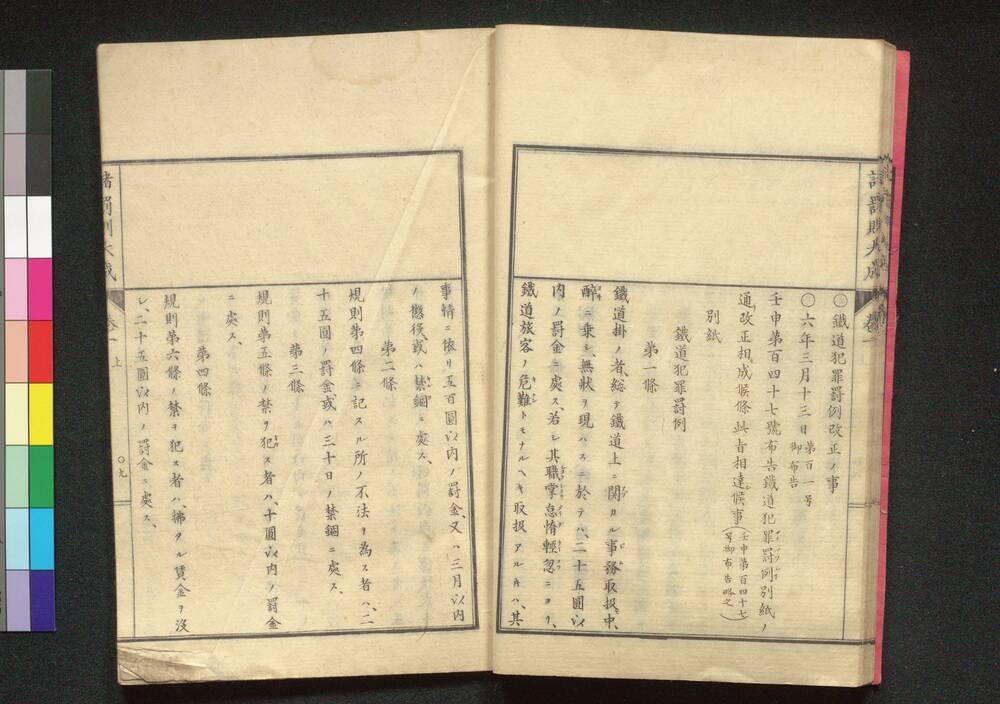 諸罰則大成
卷一
◯鐵道犯罪罰例改正ノ事
◯六年三月十三日 第百一号 御布告
壬申第百四十七號布告鐵道犯罪罰例別紙ノ
通改正相成候條此旨相達候事(壬申第百四十七号御布告略之)
別紙
鐵道犯罪罰例
第一條
鐵道掛ノ者、総テ鐵道上ニ関カル事務取扱中、
酔ニ乗シ、無狀ヲ現ハスニ於テハ、二十五圓以
内ノ罰金ニ處ス、若シ其職掌怠惰輕忽ニヨリ、
鐵道旅客ノ危難トモナルヘキ取扱アル𪜈ハ、其
事情ニ依リ五百圓以内ノ罰金、又ハ三月以内
ノ懲役或ハ禁錮ニ處ス、
第二條
規則第四條ニ記スル所ノ不法ヲ為ス者ハ、二
十五圓ノ罰金、或ハ三十日ノ禁錮ニ處ス、
第三條
規則第五條ノ禁ヲ犯ス者ハ、十圓以内ノ罰金
ニ處ス、
第四條
規則第六條ノ禁ヲ犯ス者ハ、拂タル賃金ヲ沒
シ、二十五圓以内ノ罰金ニ處ス、
諸罰則大成
卷一
上
〇九